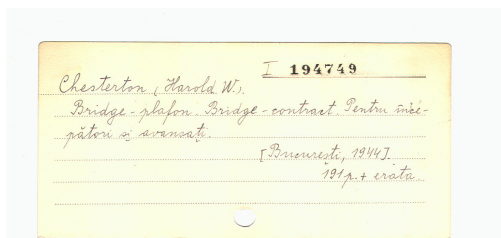 I 194749
Chesterton (Harold W.).
Bridge-plafon. Bridge-contract. Pentru înce-
pători și avansați.
[București, 1944].
191 p. + erata.